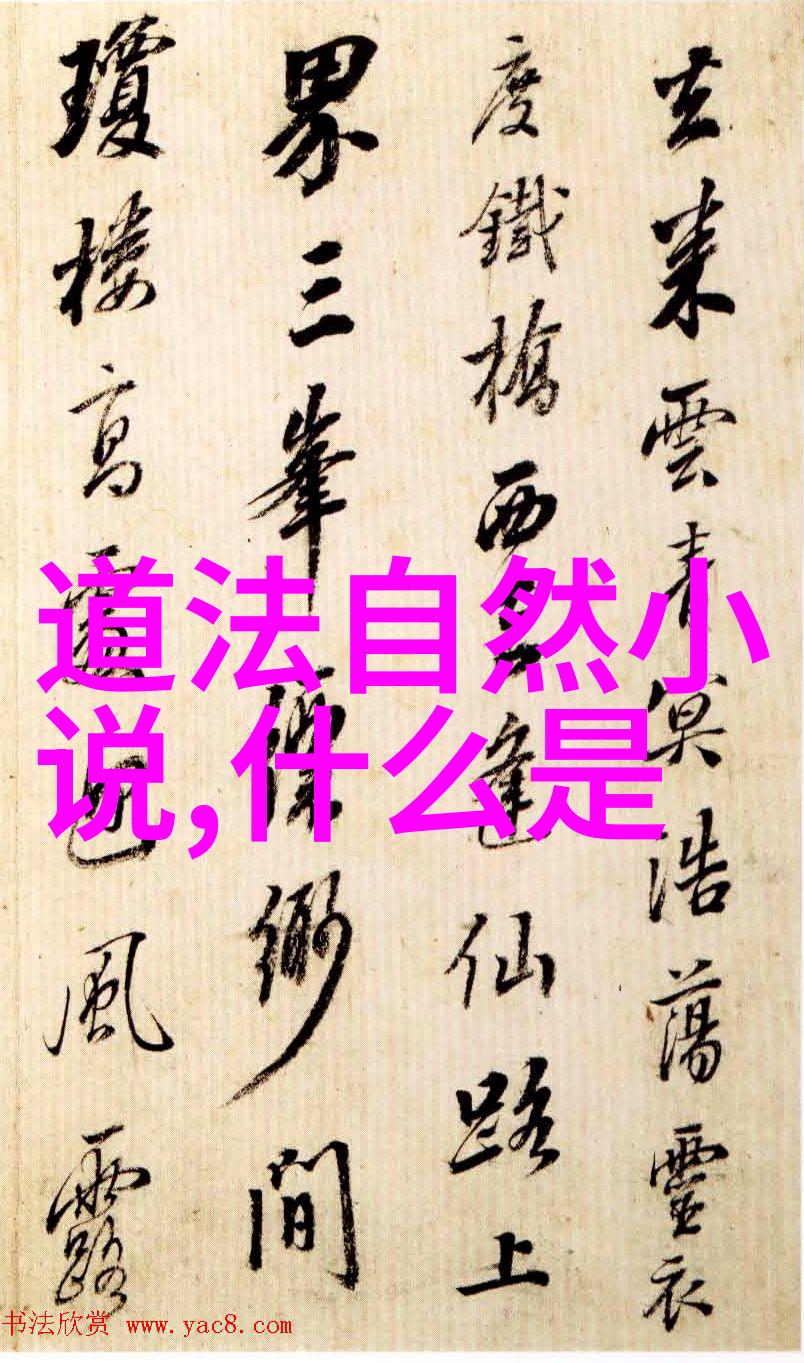 雲青冥浩蕩靈衣
度鐵橋西逢仙路上
界三峯縹緲間
瓊樓高處風露
道法自然小
说,什么是
书法欣赏 www.yac8.com